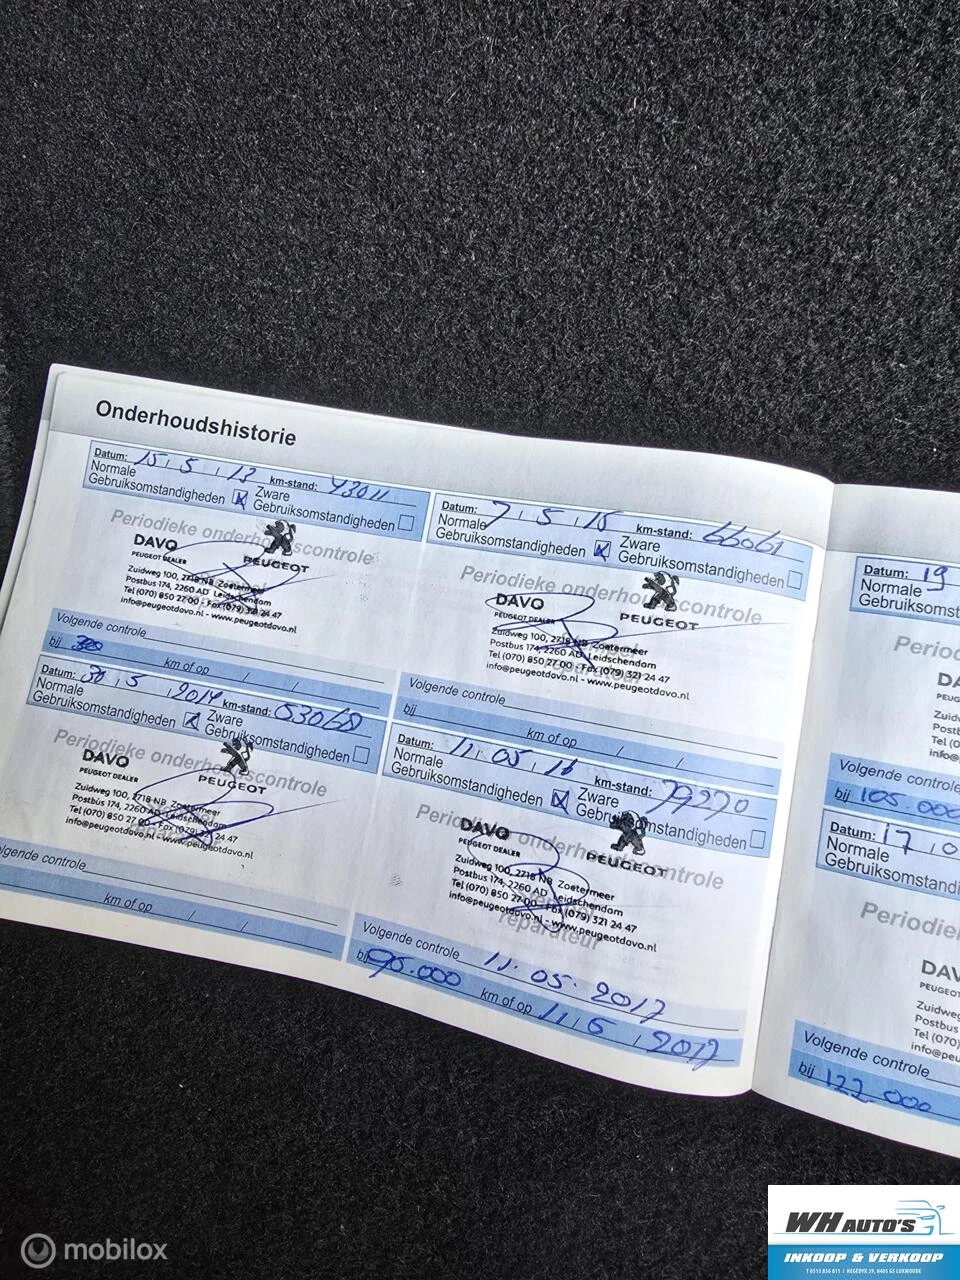 Onderhoudshistorie
Datum: 15 , 5 , 13 km-stand: 43011
Normale
Gebruiksomstandigheden Zware
Gebruiksomstandigheden
Periodieke onderhoudscontrole
DAVO
PEUGEOT DEALER
PEUGEOT
Zuidweg 100, 2718 NB Zoetermeer
Postbus 174, 2260 AD Leidschendam
Tel (070) 850 27 00 - Fax (079) 321 24 47
info@peugeotdavo.nl - www.peugeotdavo.nl
Volgende controle
bij km of op / /
Datum: 30 , 5 , 2014 km-stand: 53068
Normale
Gebruiksomstandigheden Zware
Gebruiksomstandigheden
Periodieke onderhoudscontrole
DAVO
PEUGEOT DEALER
PEUGEOT
Zuidweg 100, 2718 NB Zoetermeer
Postbus 174, 2260 AD Leidschendam
Tel (070) 850 27 00 - Fax (079) 321 24 47
info@peugeotdavo.nl - www.peugeotdavo.nl
lgende controle
km of op / /
Datum: 7 , 5 , 15 km-stand: 66061
Normale
Gebruiksomstandigheden Zware
Gebruiksomstandigheden
Periodieke onderhoudscontrole
DAVO
PEUGEOT DEALER
PEUGEOT
Zuidweg 100, 2718 NB Zoetermeer
Postbus 174, 2260 AD Leidschendam
Tel (070) 850 27 00 - Fax (079) 321 24 47
info@peugeotdavo.nl - www.peugeotdavo.nl
reparateur
Volgende controle
bij km of op / /
Datum: 11 , 05 , 16 km-stand: 79270
Normale
Gebruiksomstandigheden Zware
Gebruiksomstandigheden
Periodieke onderhoudscontrole
DAVO
PEUGEOT DEALER
PEUGEOT
Zuidweg 100, 2718 NB Zoetermeer
Postbus 174, 2260 AD Leidschendam
Tel (070) 850 27 00 - Fax (079) 321 24 47
info@peugeotdavo.nl - www.peugeotdavo.nl
reparateur
Volgende controle 11. 05. 2017
bij 90.000 km of op 11 / 5 / 2017
Datum: 19
Normale
Gebruiksomst
Periodi
DA
PEUG
Zuid
Post
Tel (0
info@
Volgende controle
bij 105.000
Datum: 17 , 0
Normale
Gebruiksomstandi
Periodie
DAV
PEUGEOT
Zuidweg
Postbus
Tel (070)
info@peu
Volgende controle
bij 122.000
mobilox
WH AUTO'S
INKOOP & VERKOOP
T 0513 856 811 | HEGEDYK 29, 8405 GS LUXWOUDE